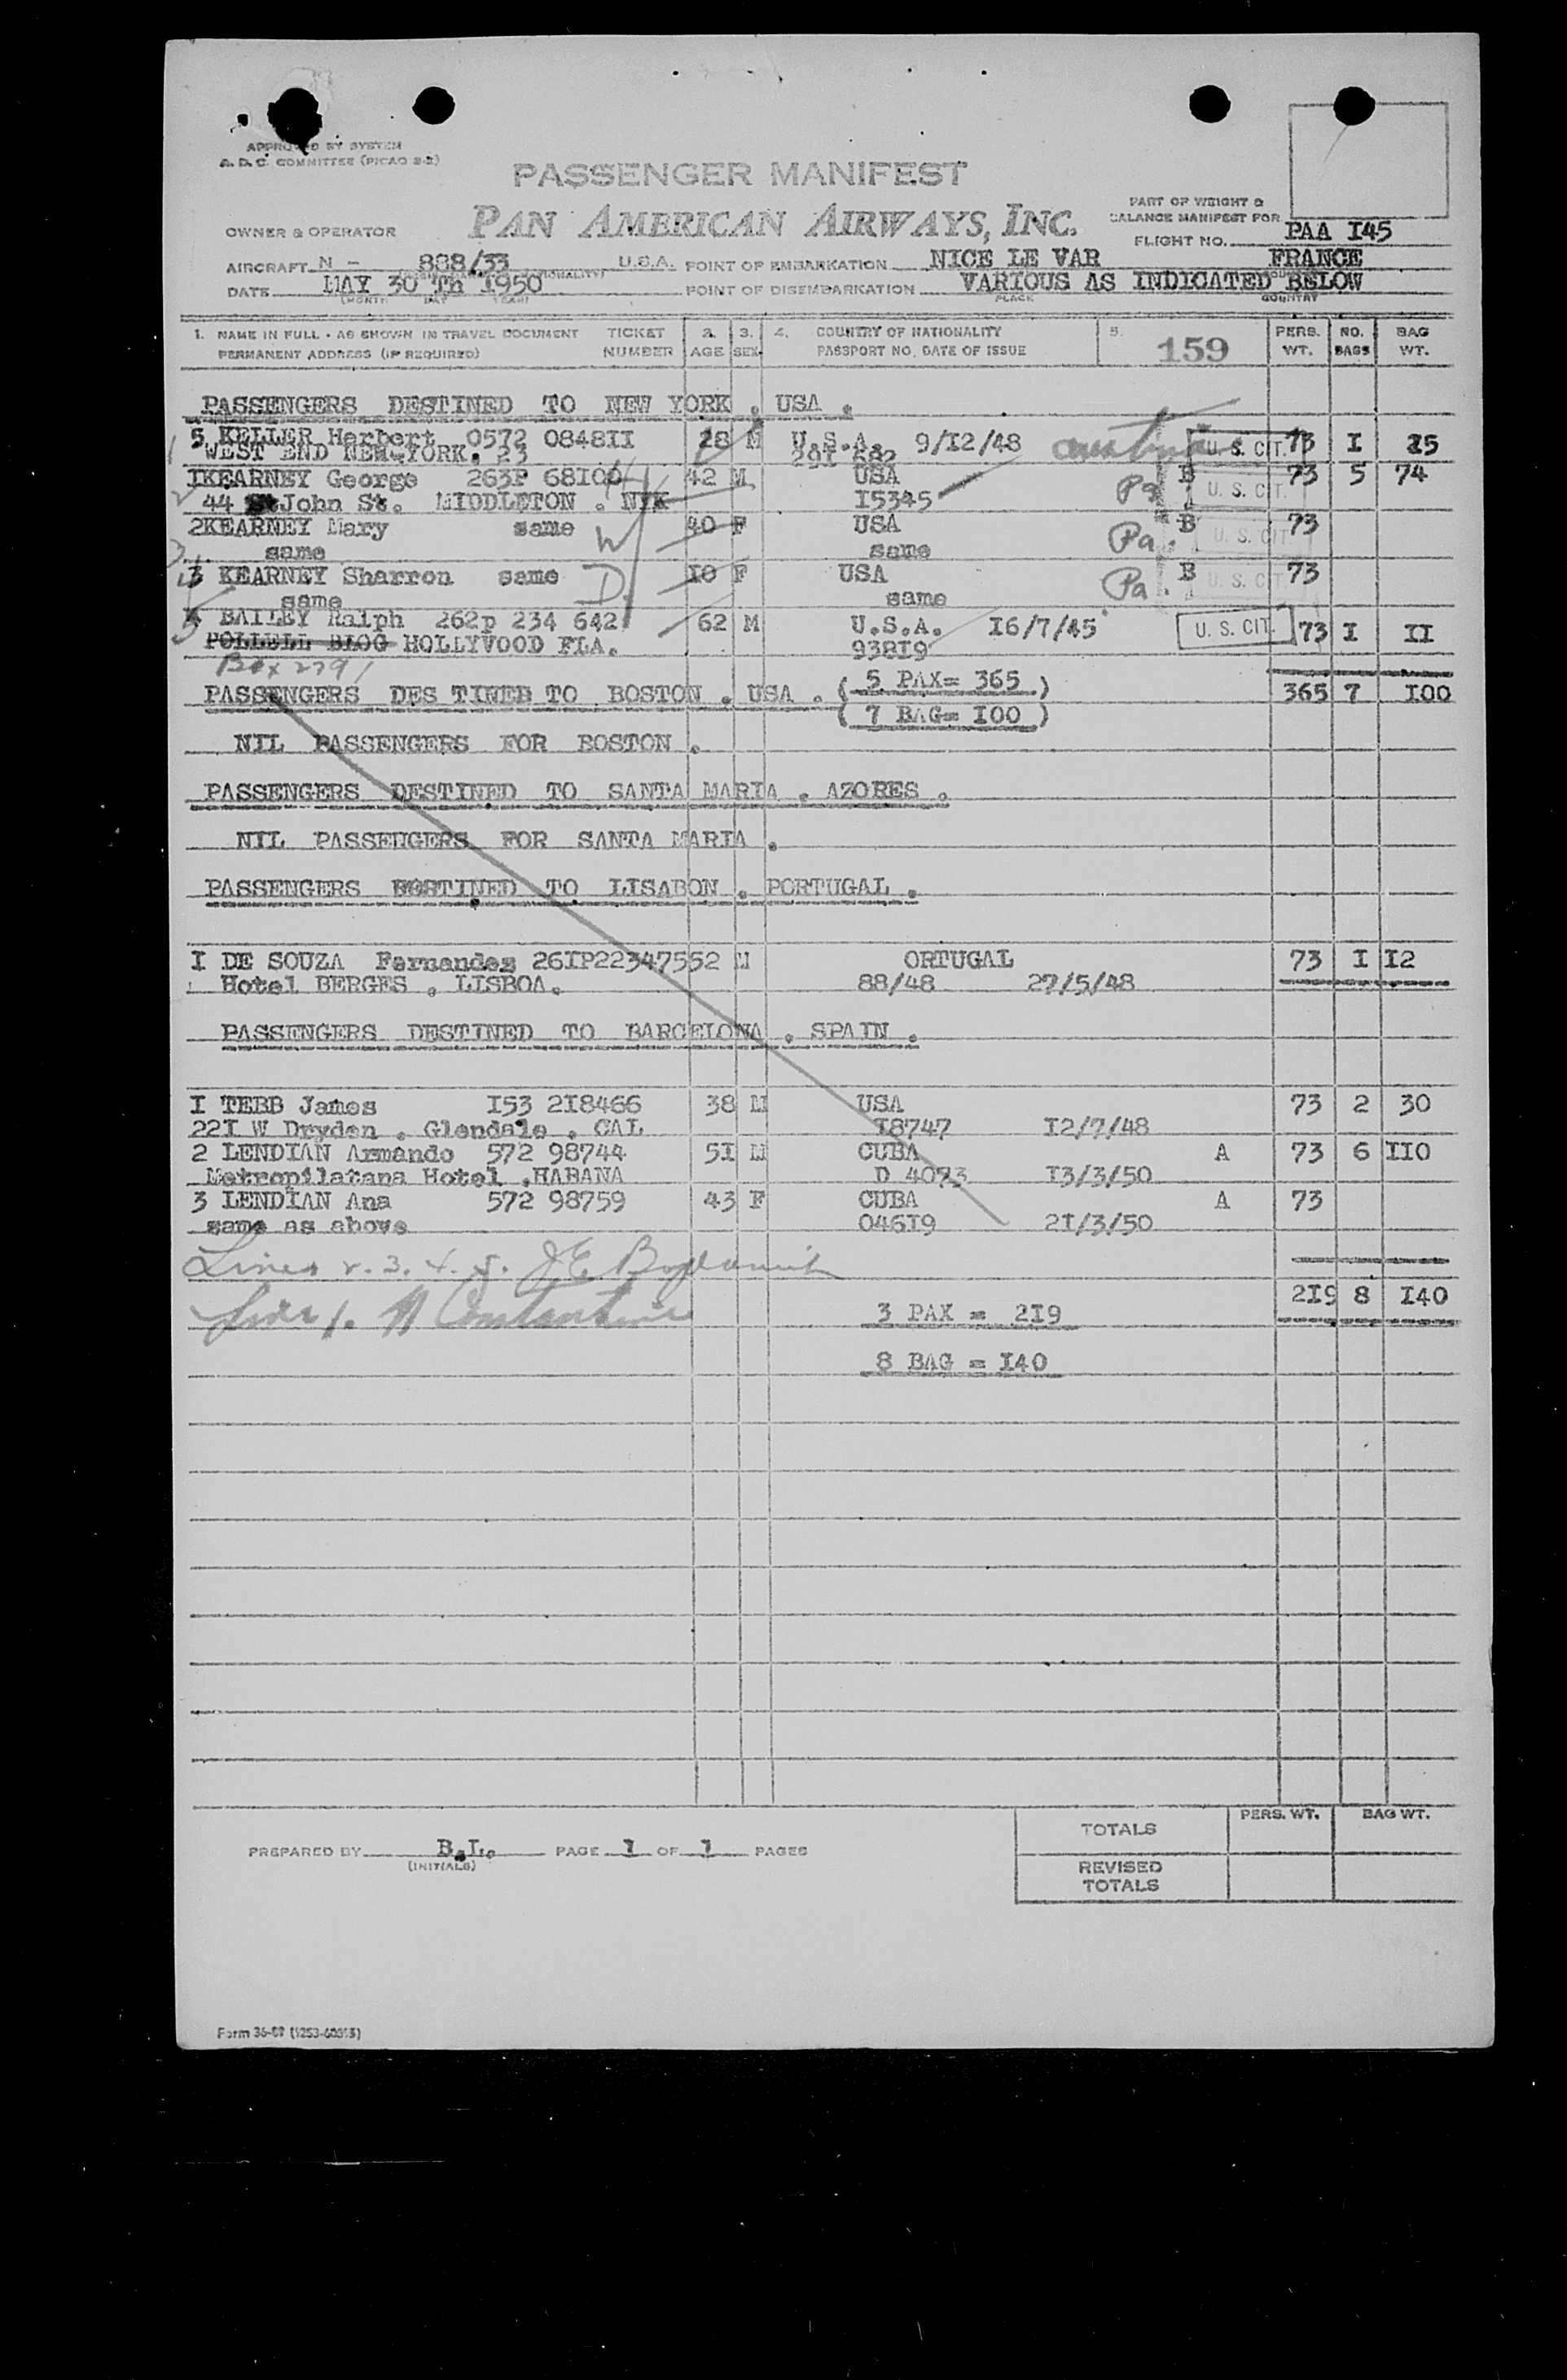 APPROVED BY SYSTEM
A. D. C. COMMITTEE (PICAO 2-2)
PASSENGER MANIFEST
PAN AMERICAN AIRWAYS, INC.
PART OF WEIGHT &
BALANCE MANIFEST FOR
FLIGHT NO. PAA I45
OWNER & OPERATOR
AIRCRAFT N - 888/33 U.S.A. POINT OF EMBARKATION NICE LE VAR FRANCE
DATE MAY 30 Th I950 POINT OF DISEMBARKATION VARIOUS AS INDICATED BELOW
(MONTH DAY YEAR) PLACE COUNTRY
1. NAME IN FULL - AS SHOWN IN TRAVEL DOCUMENT TICKET 2. 3. 4. COUNTRY OF NATIONALITY 5. 159 PERS. NO. BAG
PERMANENT ADDRESS (IF REQUIRED) NUMBER AGE SEX PASSPORT NO. DATE OF ISSUE WT. BAGS WT.
PASSENGERS DESTINED TO NEW YORK . USA .
5 KELLER Herbert 0572 0848II 28 M U.S.A. 9/I2/48 U. S. CIT. 73 I I5
WEST END NEW-YORK. 23 29I 682
IKEARNEY George 263P 68I00 42 M USA Pa B U. S. CIT. 73 5 74
44 St John St. MIDDLETON . NYK I5345
2KEARNEY Mary same W 40 F USA Pa. B U. S. CIT. 73
same same
3 KEARNEY Sharron same D. I0 F USA Pa. B U. S. CIT. 73
same same
4 BAILEY Ralph 262p 234 642 62 M U.S.A. I6/7/45 U. S. CIT. 73 I II
POLLELL BLOG HOLLYVOOD FLA. 938I9
Box 2791
PASSENGERS DES TINED TO BOSTON . USA . ( 5 PAX= 365 ) 365 7 I00
( 7 BAG= I00 )
NIL PASSENGERS FOR BOSTON .
PASSENGERS DESTINED TO SANTA MARIA . AZORES .
NIL PASSENGERS FOR SANTA MARIA .
PASSENGERS DESTINED TO LISABON . PORTUGAL .
I DE SOUZA Fernandes 26IP22347552 M ORTUGAL 73 I I2
Hotel BERGES . LISBOA. 88/48 27/5/48
PASSENGERS DESTINED TO BARCELONA . SPAIN .
I TEBB James I53 2I8466 38 M USA 73 2 30
22I W Dryden . Glendale . CAL I8747 I2/7/48
2 LENDIAN Armando 572 98744 5I M CUBA A 73 6 II0
Metropilatana Hotel .HABANA D 4073 I3/3/50
3 LENDIAN Ana 572 98759 43 F CUBA A 73
same as above 046I9 2I/3/50
Lines 2. 3. 4. 5.
2I9 8 I40
Line 1.
3 PAX = 2I9
8 BAG = I40
PREPARED BY B.L. PAGE 1 OF 1 PAGES
(INITIALS)
PERS. WT. BAG WT.
TOTALS
REVISED
TOTALS